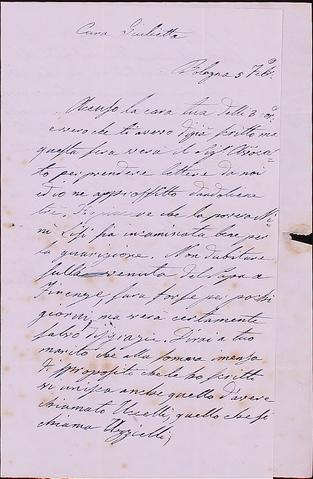 Cara Giulietta
Bologna 5 Feb.
Accuso la cara tua delli 3 cor.
è vero che ti avevo digià scritto ma
questa sera verrà il Sig. Avvoca-
to per prendere lettere da noi
ed io ne approffitto dandoliene
tre. che la povera Mi
mi Lisi sia incaminata bene per
la guarigione. Non dubitare
sulla venuta del Papa a
Firenze sarà forse per pochi
giorni, ma verrà certamente
salvo disgrazie. Dirai a tuo
marito che alla somma immensa
di spropositi che le ho scritti
vi unisca anche quello d'avere
chiamato Uccelli, quello che si
chiama Uzzielli,